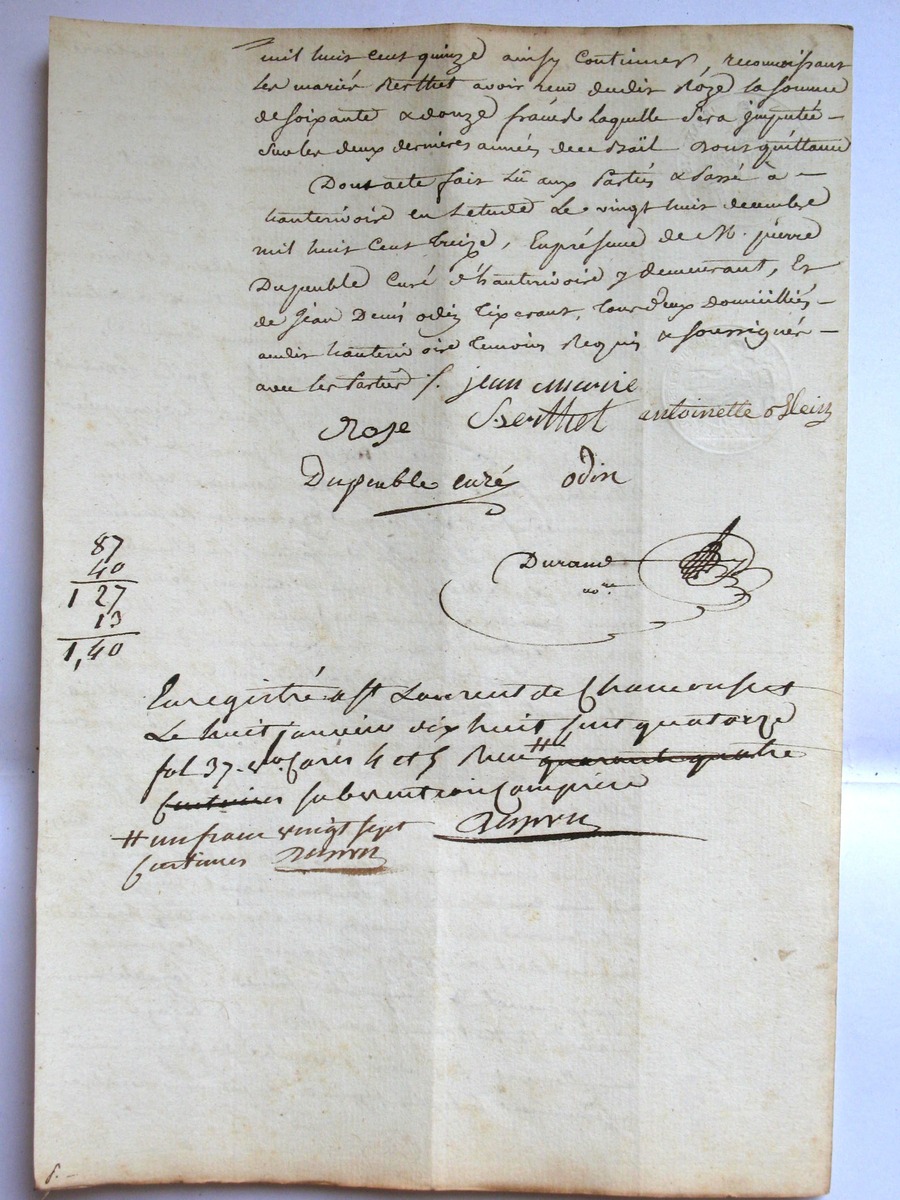 mil huit cent quinze ainsy continuer, reconnoissant
les mariés Berthet avoir reçu dudit Rôze la somme
de soixante & douze francs laquelle sera jmputée -
sur les deux dernières années de ce Bail dont quittance
Dont acte fait Lû aux Parties & Passé à -
hauterivoire en L'etude Le vingt huit decembre
mil huit Cent treize, En présence de M. pierre
Dupeuble Curé d'hauterivoire y demeurant, Et
de Jean Denis odin Tixerant, tous deux domiciliés -
audit hauterivoire temoins Requis & soussignés -
avec les Parties /. jean marie
Rose Berthet antoinette
Dupeuble curé odin
Durand
nore
87
40
127
13
1,40
Enregistré a St Laurent de Chamousset
Le huit janvier dix huit cent quatorze
fol 37. vo. Cases 4 et 5 Reçu # quarante quatre
Centimes subvention Comprise
# un franc vingt sept
Centimes